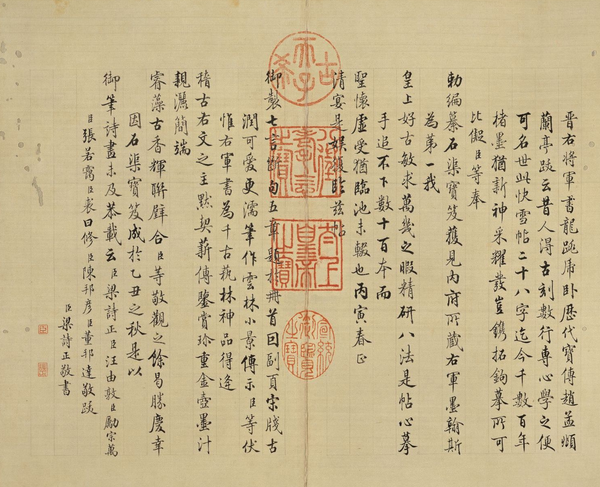 晉右將軍書龍跳虎臥歷代寶傳趙孟頫
蘭亭跋云昔人得古刻數行專心學之便
可名世此快雪帖二十八字迄今千數百年
楮墨猶新神采耀發豈鐫拓鉤摹所可
比儗臣等奉
勅編纂石渠寶笈獲見內府所藏右軍墨翰斯
為第一我
皇上好古敏求萬幾之暇精研八法是帖心摹
手追不下數十百本而
聖懷虛受猶臨池未輟也丙寅春正
清宴是娛復臨茲帖
御製七言斷句五章題於冊首因副頁宋牋古
潤可愛更濡筆作雲林小景傳示臣等伏
惟右軍書為千古執林神品得逢
稽古右文之主默契薪傳鑒賞珍重金壺墨汁
親灑簡端
睿藻古香輝聯璧合臣等敬觀之餘曷勝慶幸
因石渠寶笈成於乙丑之秋是以
御筆詩畫未及恭載云臣梁詩正臣汪由敦臣勵宗萬
臣張若靄臣裘曰修臣陳邦彥臣董邦達敬跋
臣梁詩正敬書
古希天子
壽
太上皇帝之寶
宣統御覽之寶